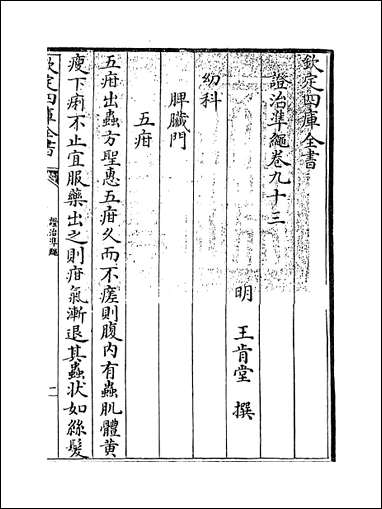 欽定四庫全書
證治準繩卷九十三
明 王肯堂 撰
幼科
脾臟門
五疳
五疳出蟲方聖惠五疳久而不瘥則腹内有蟲肌體黄
瘦下痢不止宜服藥出之則疳氣漸退其蟲状如絲髮
欽定四庫全書
證治準繩